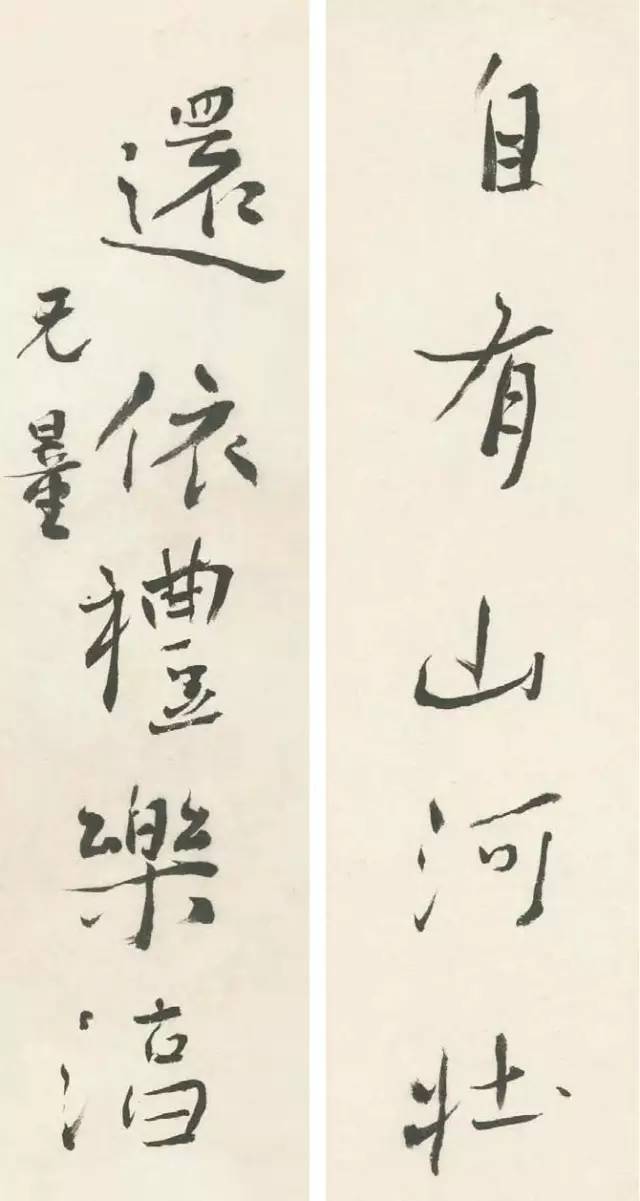 自有山河壯
還依禮樂湻
无量